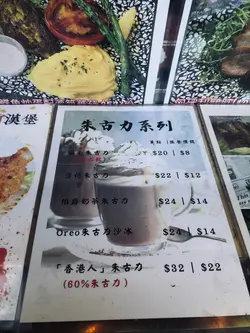 漢堡
朱古力系列
朱古力 $20 | $8
朱古力 $22 | $12
朱古力 $24 | $14
Oreo朱古力沙冰 $24 | $14
「香港人」朱古力 $32 | $22
(60%朱古力)